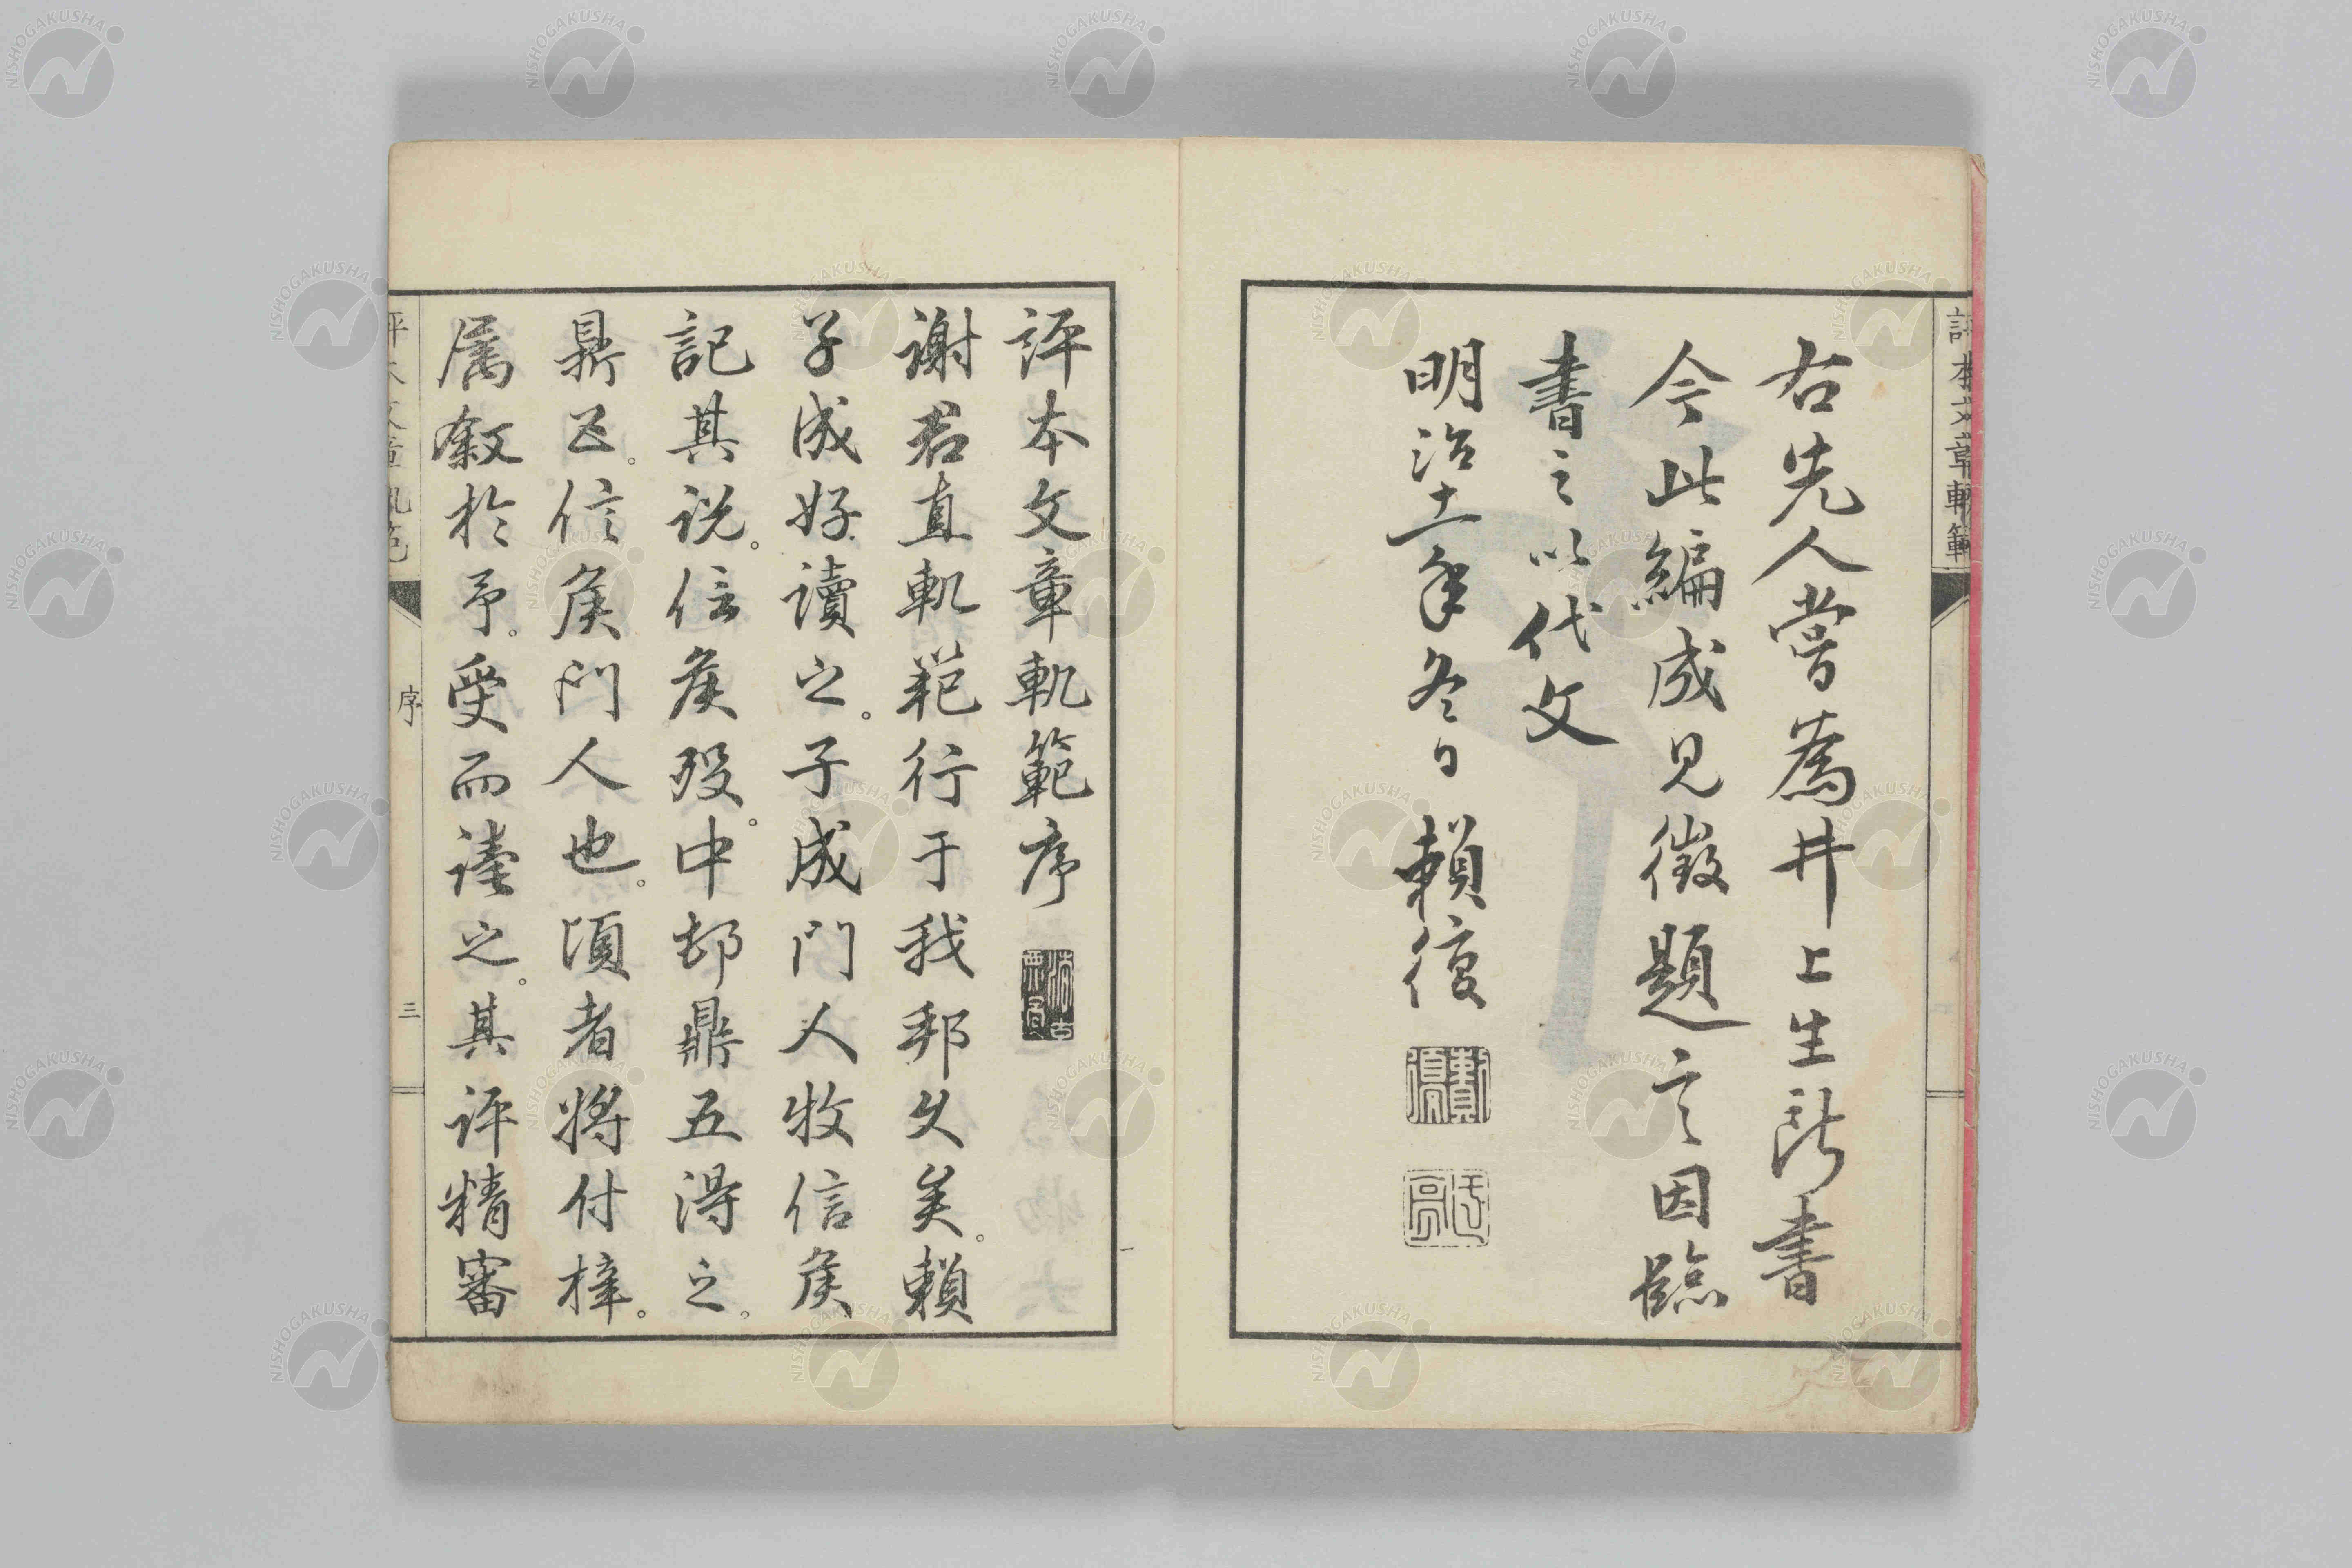 評本文章軌範
右先人嘗為井上生所書
今此編成見徵題言因臨
書之以代文
明治十一年冬日 賴復
賴復
評本文章軌範序
謝君直軌範行于我邦久矣。賴
子成好讀之。子成門人牧信矦
記其説。信矦歿。中邨鼎五得之。
鼎五。信矦門人也。頃者將付梓。
属敘於予。受而讀之。其評精審
序
三
NISHOGAKUSHA